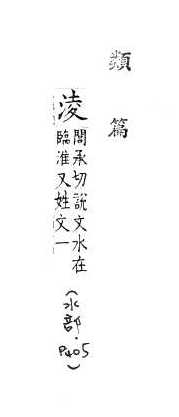 類篇
淩
閭承切說文水在
臨淮又姓文一
(水部·P405)